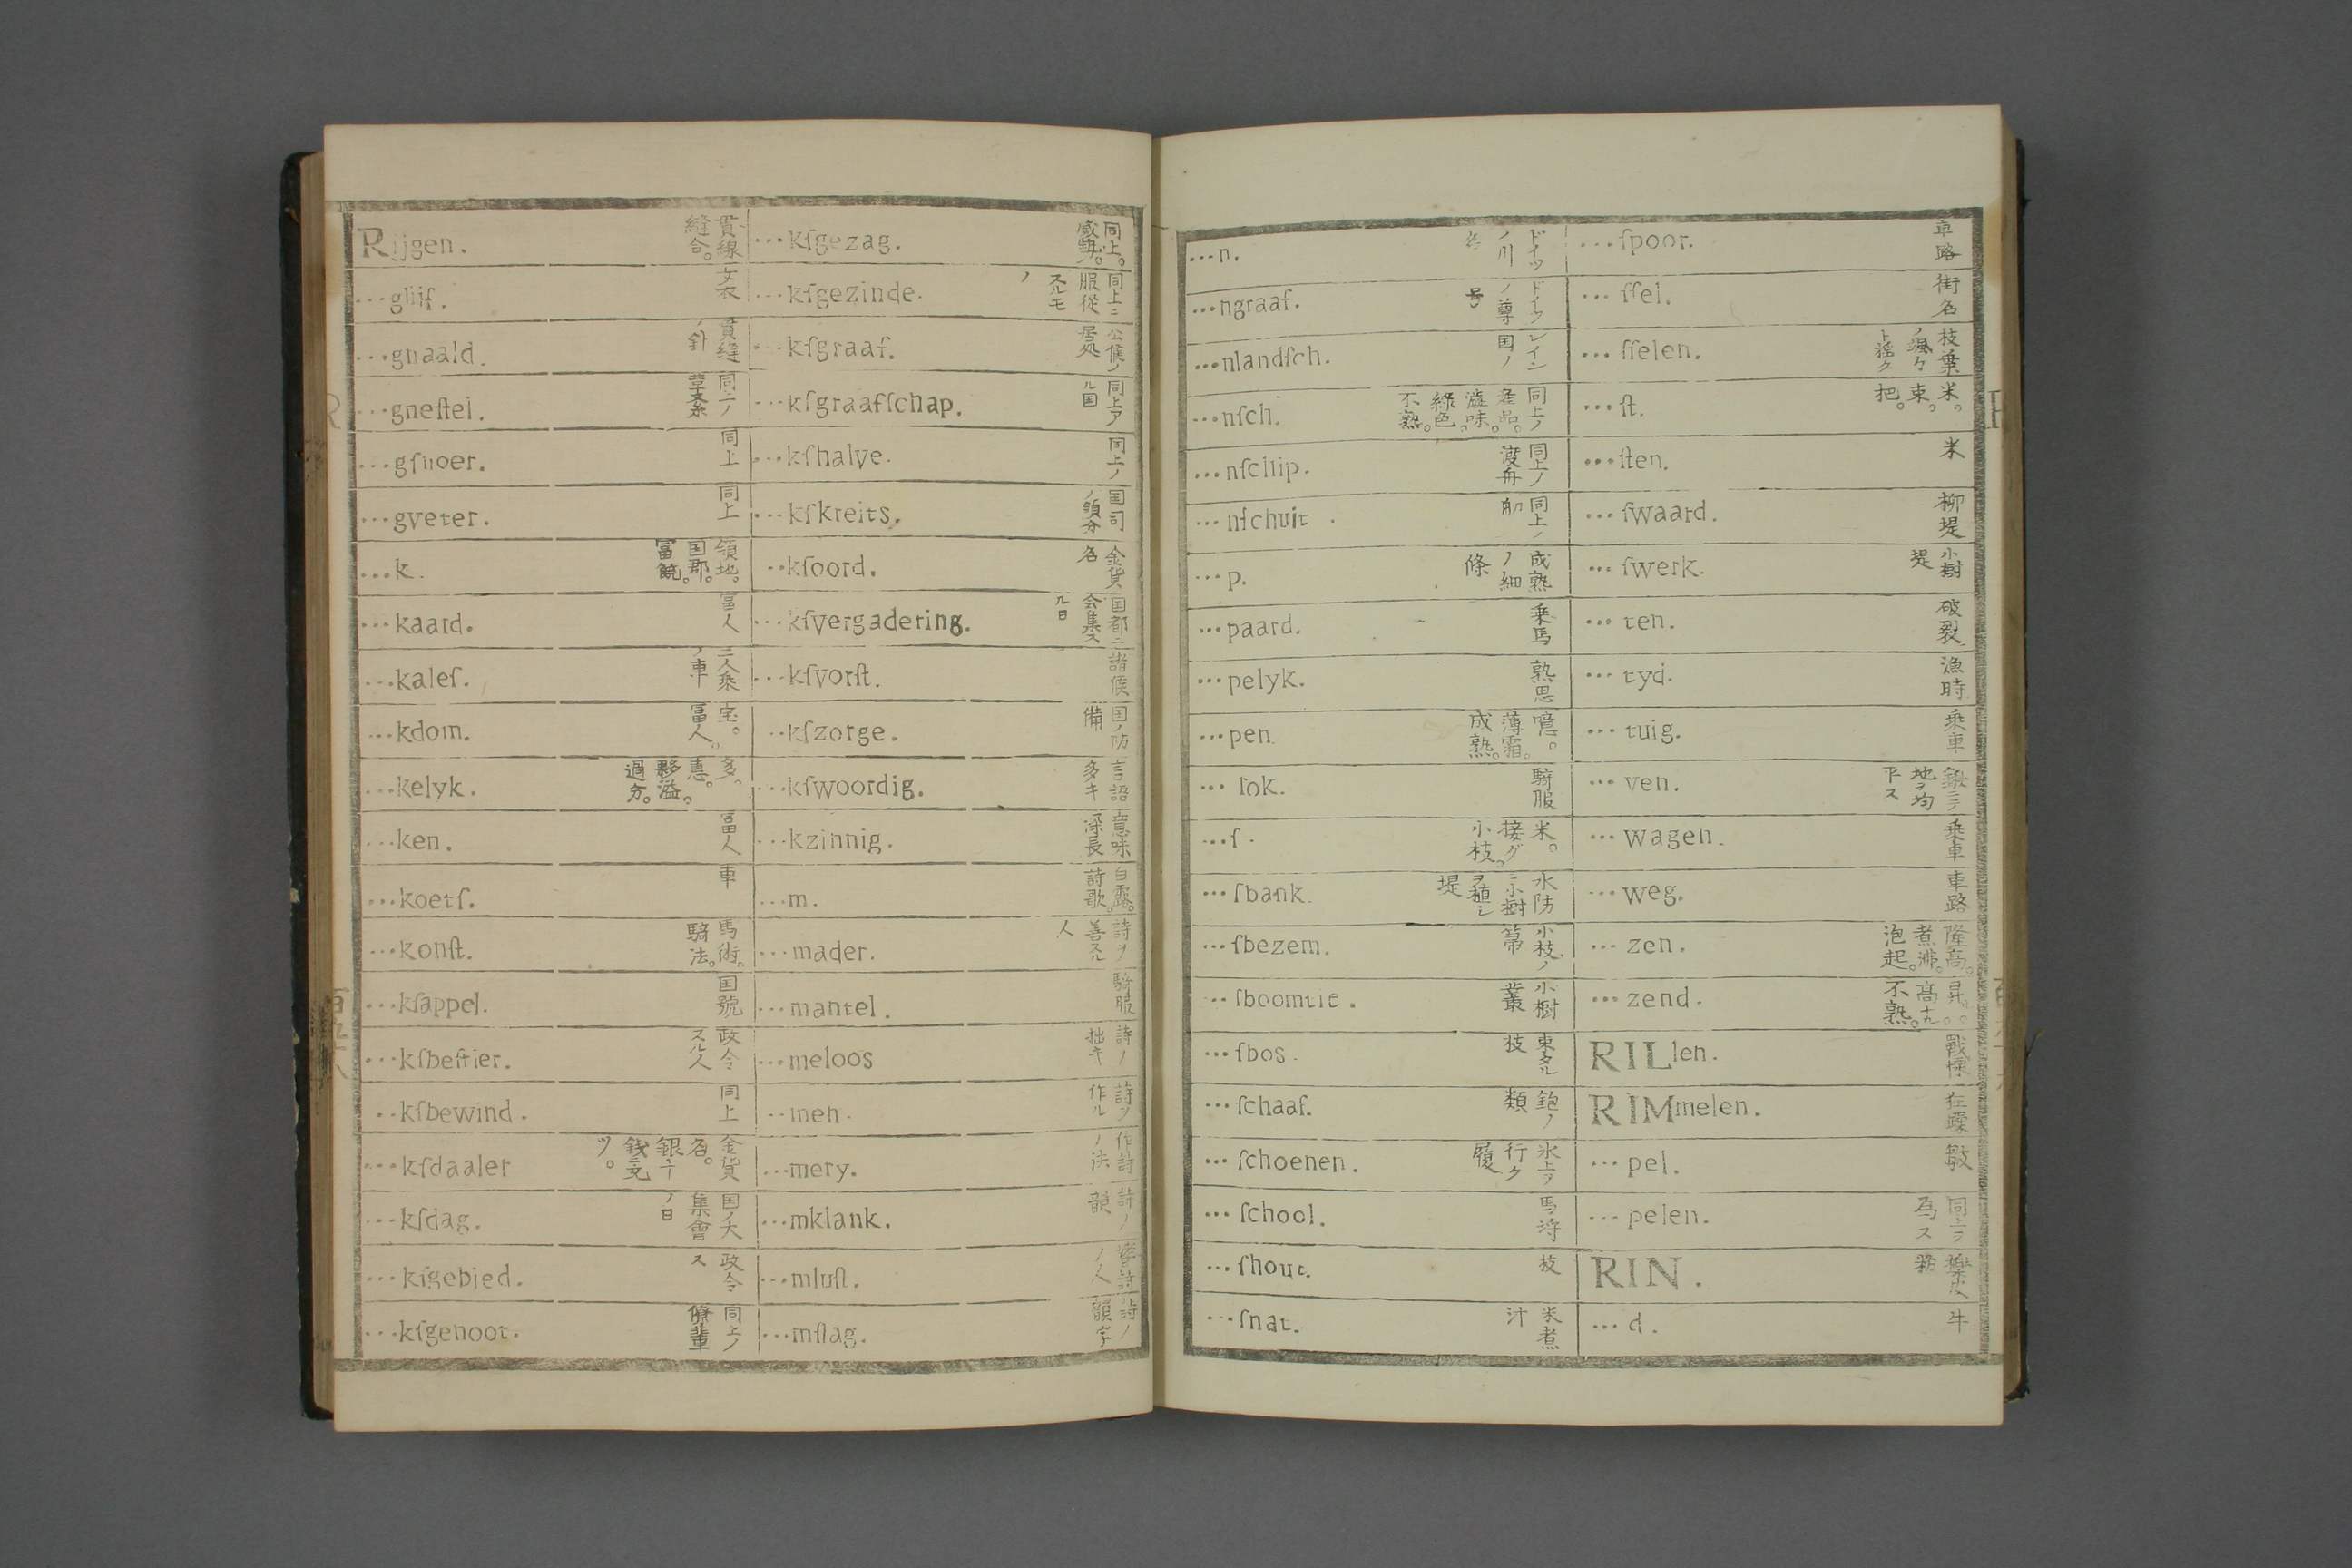 Rijgen. 貫線 縫合。
...glijf. 女衣
...gnaald. 貫縫ノ針
...gneſtel. 同上ノ
...gſnoer. 同上
...gveter. 同上
...k. 領地。国郡。冨饒。
...kaard. 冨人
...kaleſ. 二人乗ノ車
...kdom. 宝。冨人。
...kelyk. 多。惠。夥溢。過分。
...ken. 冨人
...koetſ. 車
...konſt. 馬術。騎法。
...kſappel. 国號
...kſbeſtier. 政令スル人
...kſbewind. 同上
...kſdaaler 金貨名。
...kſdag. 国ノ大集會ノ日
...kſgebied. 政令ス
...kſgenoot. 同上ノ儕輩
...kſgezag. 同上。威勢。
...kſgezinde. 同上ニ服從スルモノ
...kſgraaf. 公侯ノ居処
...kſgraafſchap. 同上ノ国
...kſhalve. 同上ノ
...kſkreits. 国司ノ領分
..kſoord. 金貨名
...kſvergadering. 国都ニ会集スル日
...kſvorſt. 諸侯
..kſzorge. 国ノ防備
...kſwoordig. 言語多キ
...kzinnig. 意味深長
...m. 白露。詩歌。
...mader. 詩ヲ善スル人
...mantel. 騎服
...meloos 詩ノ拙キ
..men. 詩ヲ作ル
...mery. 作詩ノ法
...mklank. 詩ノ韻
...mluſt. ノ人
...mſlag. 詩ノ韻字
...n. ドイツノ川名
...ngraaf. ドイツノ尊号
...nlandſch. レイン国ノ
...nſch. 同上ノ産品。澁味。綠色。不熟。
...nſchip. 同上ノ渡舟
...nſchuit. 同上ノ舟
...p. 成熟ノ細條
...paard. 乗馬
...pelyk. 熟思
...pen. 噫。薄霜。成熟。
...ſok. 騎服
...ſ. 米。接グ小枝。
...ſbank. 水防ニ小樹ヲ植シ堤
...ſbezem. 小枝ノ箒
...ſboomtie. 小樹叢
...ſbos. 束タル枝
...ſchaaf. 鉋ノ類
...ſchoenen. 氷上ヲ行ク履
...ſchool. 馬埒
...ſhout. 枝
...ſnat. 米煮汁
...ſpoor. 車路
...ſſel. 街名
...ſſelen. 枝葉ノ颯々ト揺ク
...ſt. 米。束。把。
...ſten. 米
...ſwaard. 柳堤
...ſwerk. 小樹堤
...ten. 破裂
...tyd. 漁時
...tuig. 乗車
...ven. 地ヲ均ス
...wagen. 乗車
...weg. 車路
...zen. 隆髙。煮沸。泡起。
...zend. 昇。髙キ。不熟。
RILlen. 戰慄
RIMmelen. 狂躁
...pel. 皺
...pelen. 同上ヲ為ス
RIN.
...d. 牛